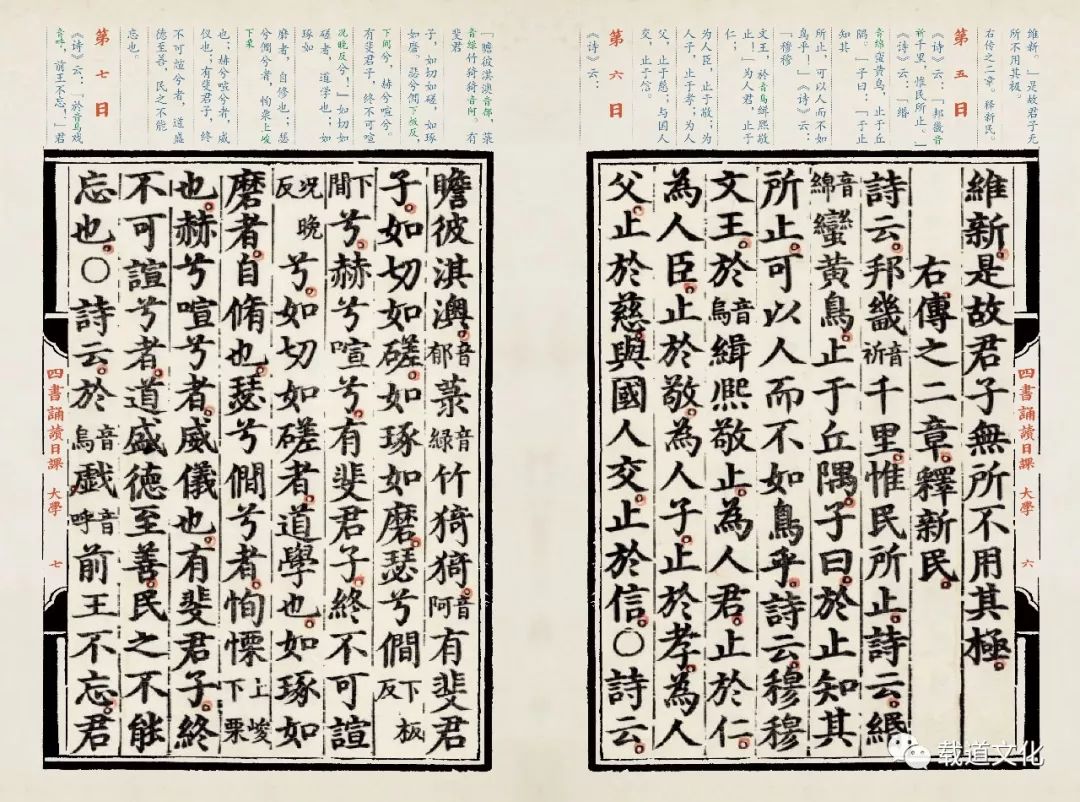 维新。』是故君子无
所不用其极。
右传之二章。释新民。
第五日
《诗》云:『邦畿音
祈千里,惟民所止。』
《诗》云:『缗
音绵蛮黄鸟,止于丘
隅。』子曰:『于止
知其
所止,可以人而不如
鸟乎!』《诗》云:
『穆穆
文王,於音乌缉熙敬
止!』为人君,止于
仁;
为人臣,止于敬;为
人子,止于孝;为人
父,止于慈;与国人
交,止于信。
第六日
《诗》云:
維新。是故君子無所不用其極。
右傳之二章。釋新民。
詩云。邦畿音祈千里。惟民所止。詩云。緡
音綿蠻黃鳥。止于丘隅。子曰。於止知其
所止。可以人而不如鳥乎。詩云。穆穆
文王。於音烏緝熙敬止。為人君。止於仁。
為人臣。止於敬。為人子。止於孝。為人
父。止於慈。與國人交。止於信。○詩云。
四書誦讀日課 大學 六
『瞻彼淇澳音郁,菉
音绿竹猗猗音阿。有
斐君
子,如切如磋,如琢
如磨。瑟兮僴下板反,
下间兮,赫兮喧兮。
有斐君子,终不可喧
况晚反兮。』如切如
磋者,道学也;如
琢如
磨者,自修也;瑟
兮僴兮者,恂栗上峻
下栗
也;赫兮喧兮者,威
仪也;有斐君子,终
不可諠兮者,道盛
德至善,民之不能
忘也。
第七日
《诗》云:『於音乌戏
音呼,前王不忘。』君
瞻彼淇澳。音郁菉音綠竹猗猗。音阿有斐君
子。如切如磋。如琢如磨。瑟兮僴下板反
下間兮。赫兮喧兮。有斐君子。終不可諠
况晚反兮。如切如磋者。道學也。如琢如
磨者。自脩也。瑟兮僴兮者。恂慄上峻下栗
也。赫兮喧兮者。威儀也。有斐君子。終
不可諠兮者。道盛德至善。民之不能
忘也。○詩云。於音烏戲音呼前王不忘。君
四書誦讀日課 大學 七
载道文化